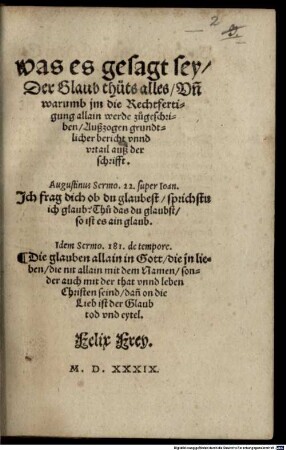 2
was es gesagt sey/
Der Glaub thuͤts alles/Vn̄
warumb jm die Rechtferti-
gung allain werde zuͤgeschri-
ben/Außzogen grundt-
licher bericht vnnd
vrtail auß der
schrifft.
Augustinus Sermo. 22. super Ioan.
Ich frag dich ob du glaubest/ sprichstu
ich glaub: Thuͤ das du glaubst/
so ist es ain glaub.
Idem Sermo. 181. de tempore.
¶Die glauben allain in Gott/die jn lie-
ben/die nit allain mit dem Namen/son-
der auch mit der that vnnd leben
Christen seind/dañ on die
Lieb ist der Glaub
tod vnd eytel.
Felix Frey.
M. D. XXXIX.